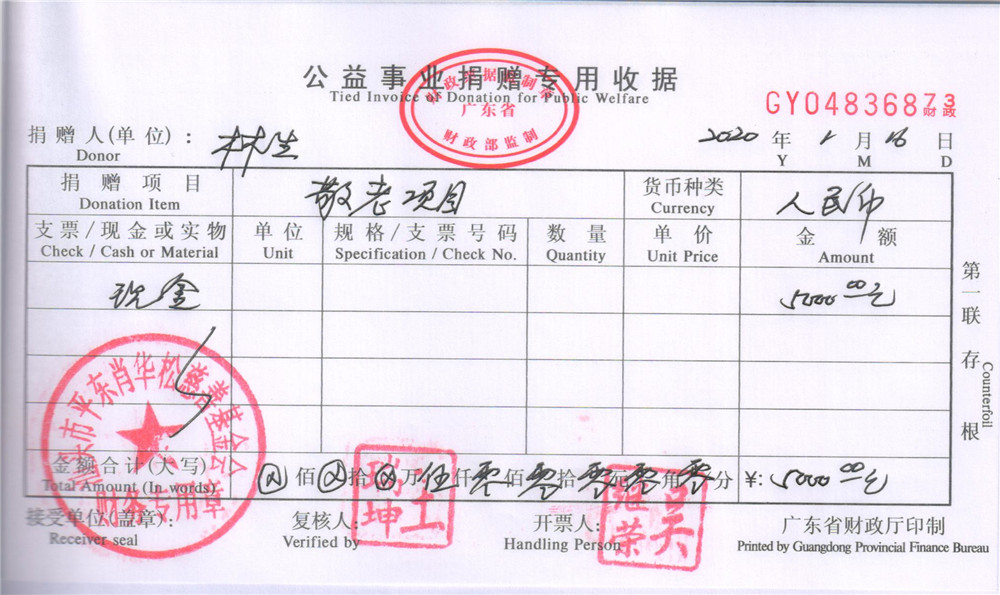 公益事业捐赠专用收据
Tied Invoice of Donation for Public Welfare
财政票据监制章
广东省
财政部监制
GY04836873
财政
捐赠人(单位)： 林生
Donor
2020 年 1 月 16 日
Y M D
捐赠项目 敬老项目 货币种类 人民币
Donation Item Currency
支票/现金或实物 单位 规格/支票号码 数量 单价 金额
Check / Cash or Material Unit Specification / Check No. Quantity Unit Price Amount
现金 5000.00元
第一联 存根
Counterfoil
汕头市平东肖华松慈善基金会
财务专用章
金额合计(大写) 佰 拾 万 伍 仟 零 佰 零 拾 零 元 零 角 零 分 ¥: 5000.00元
Total Amount (In words)
接受单位(盖章)： 复核人： 开票人： 广东省财政厅印制
Receiver seal Verified by Handling Person Printed by Guangdong Provincial Finance Bureau
瑞坤
吴继荣